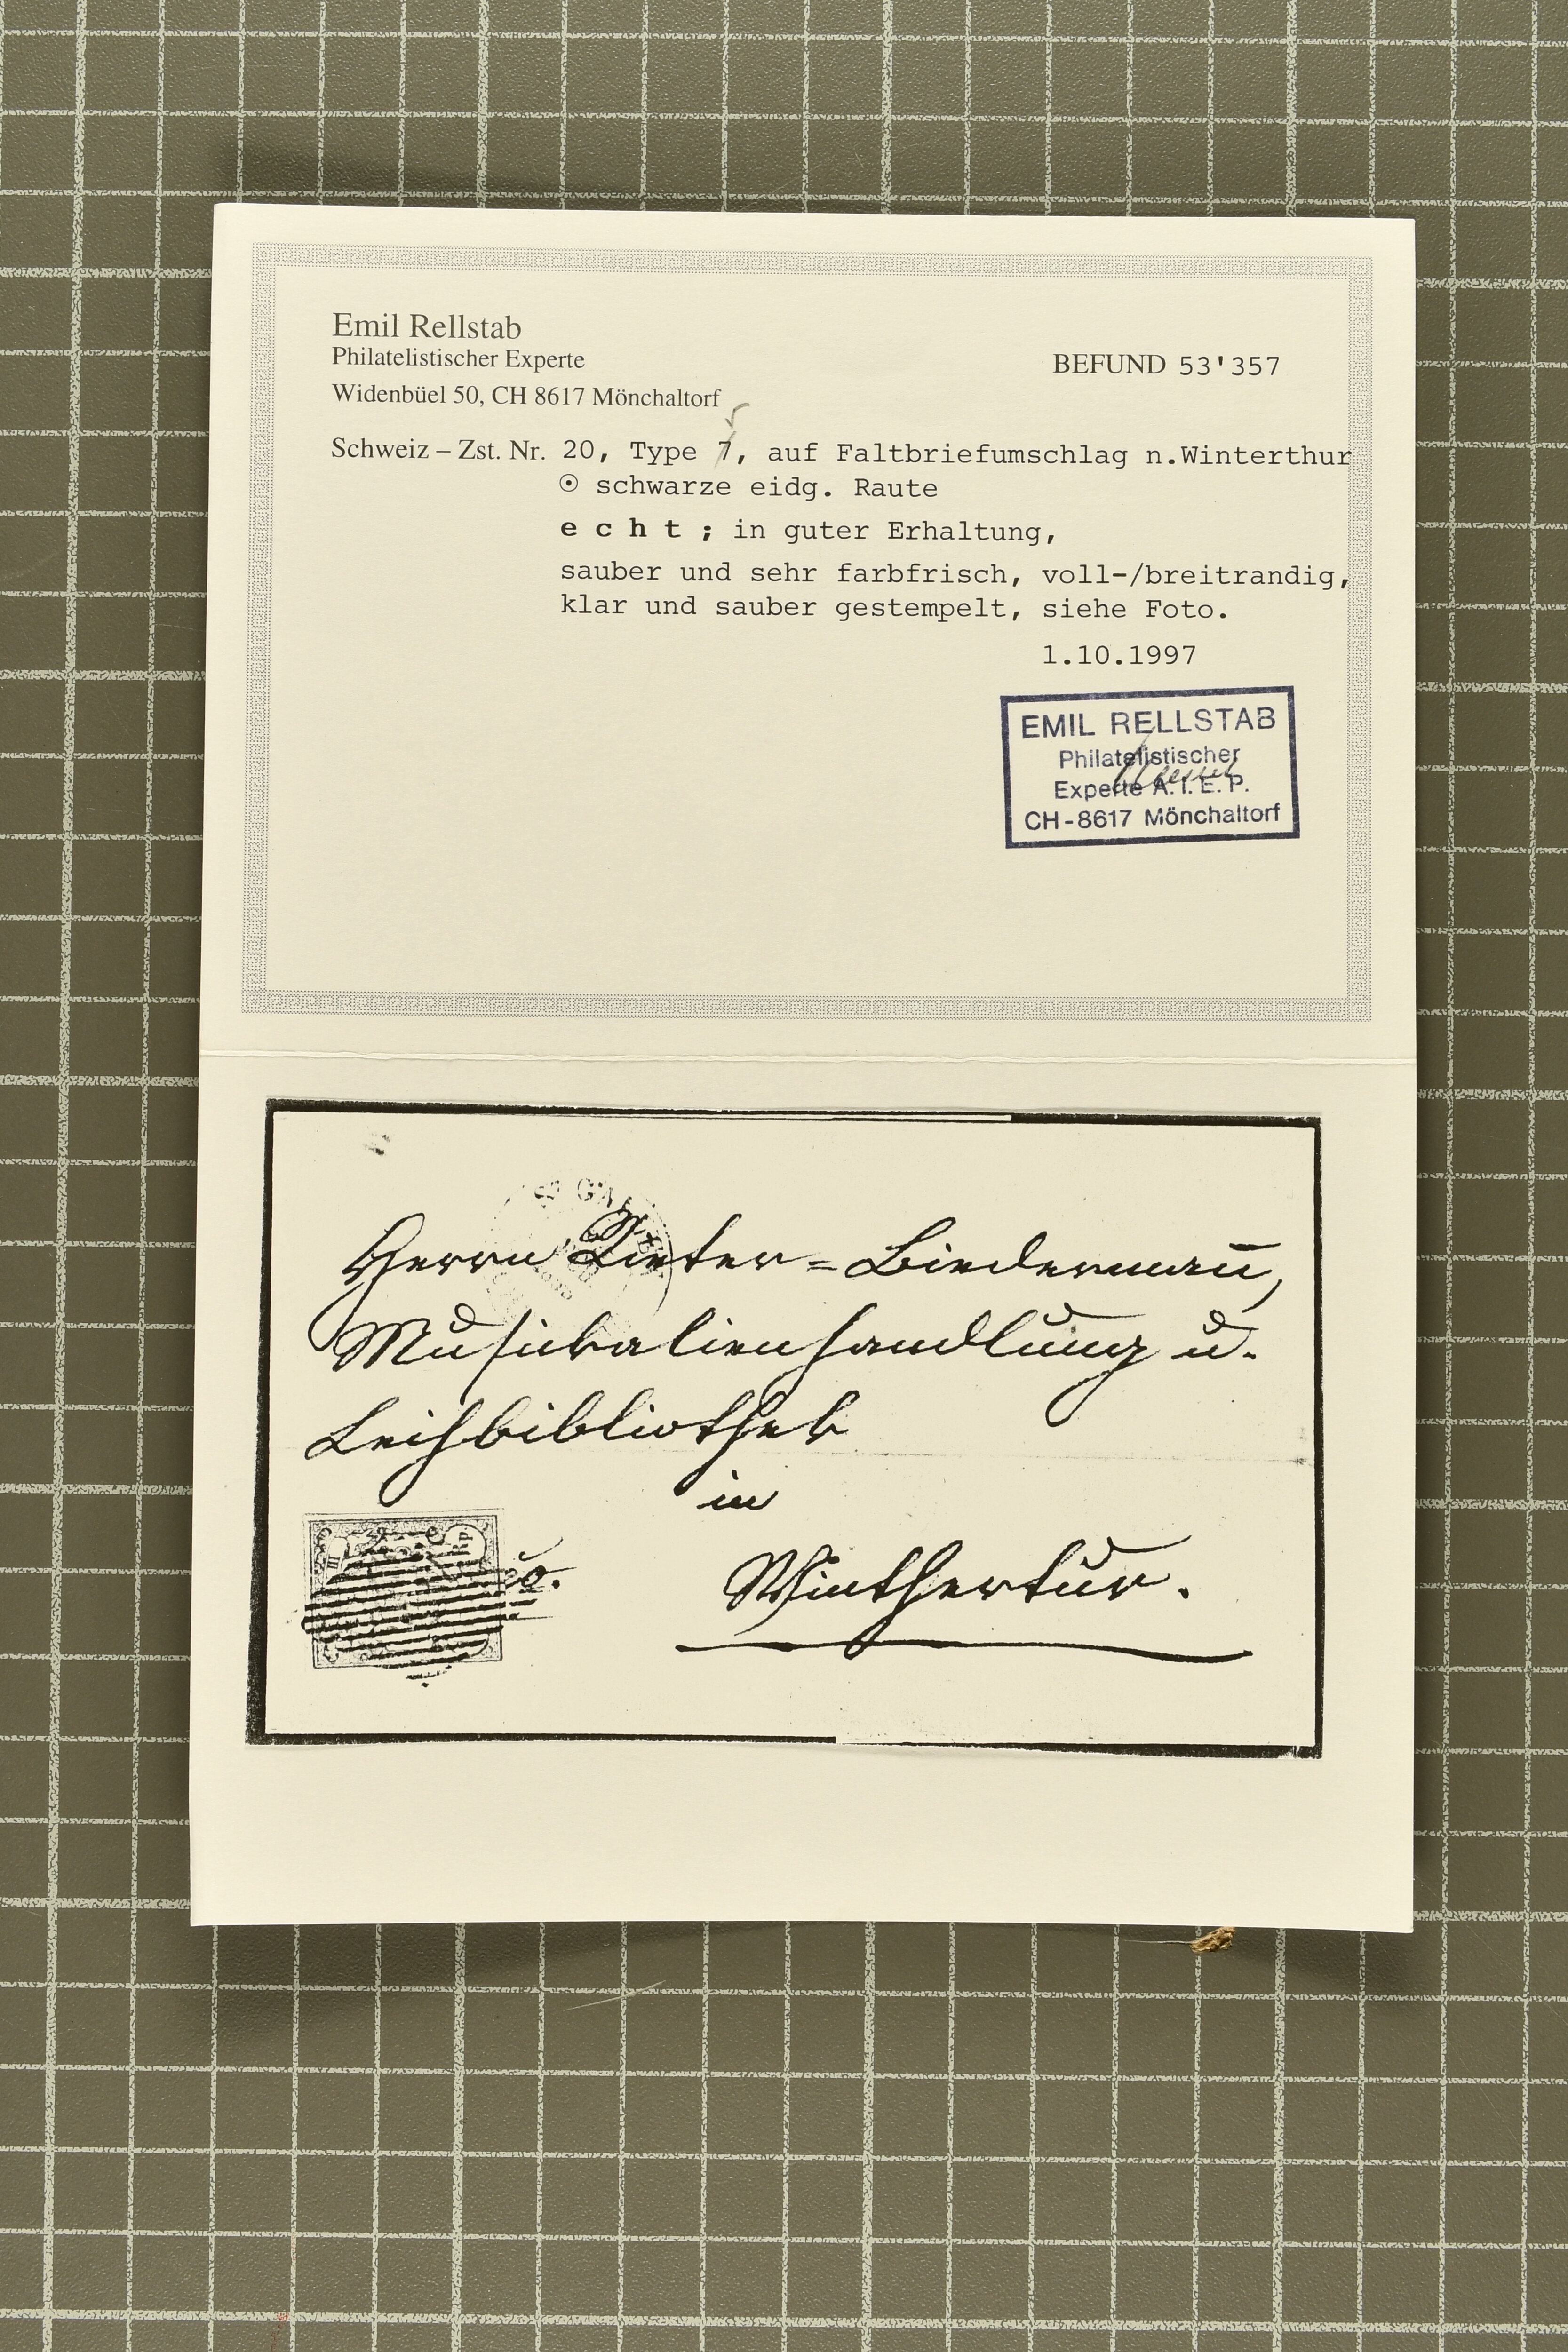 Emil Rellstab
Philatelistischer Experte
Widenbüel 50, CH 8617 Mönchaltorf
BEFUND 53'357
Schweiz – Zst. Nr. 20, Type 7, auf Faltbriefumschlag n.Winterthur
⊙ schwarze eidg. Raute
e c h t ; in guter Erhaltung,
sauber und sehr farbfrisch, voll-/breitrandig,
klar und sauber gestempelt, siehe Foto.
1.10.1997
EMIL RELLSTAB
Philatelistischer
Experte A. I. E. P.
CH-8617 Mönchaltorf
Herrn Rieter=Biedermann,
Musikalienhandlung u.
Leihbibliothek
in
Winterthur.